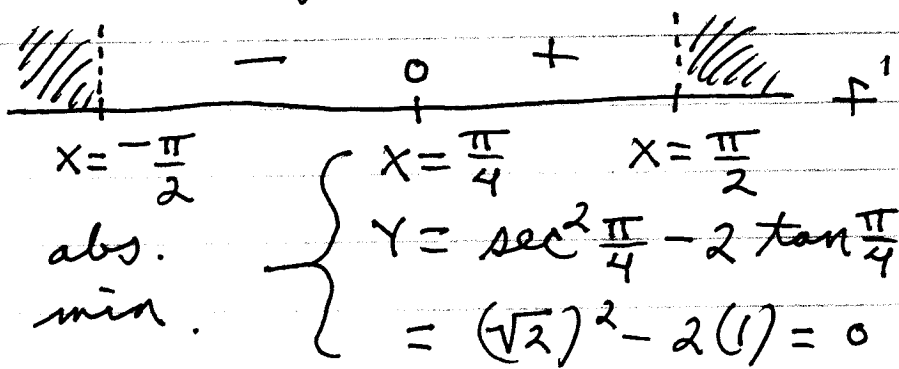 − 0 + f'
x = -π/2 x = π/4 x = π/2
abs. Y = sec² π/4 − 2 tan π/4
min. = (√2)² − 2(1) = 0